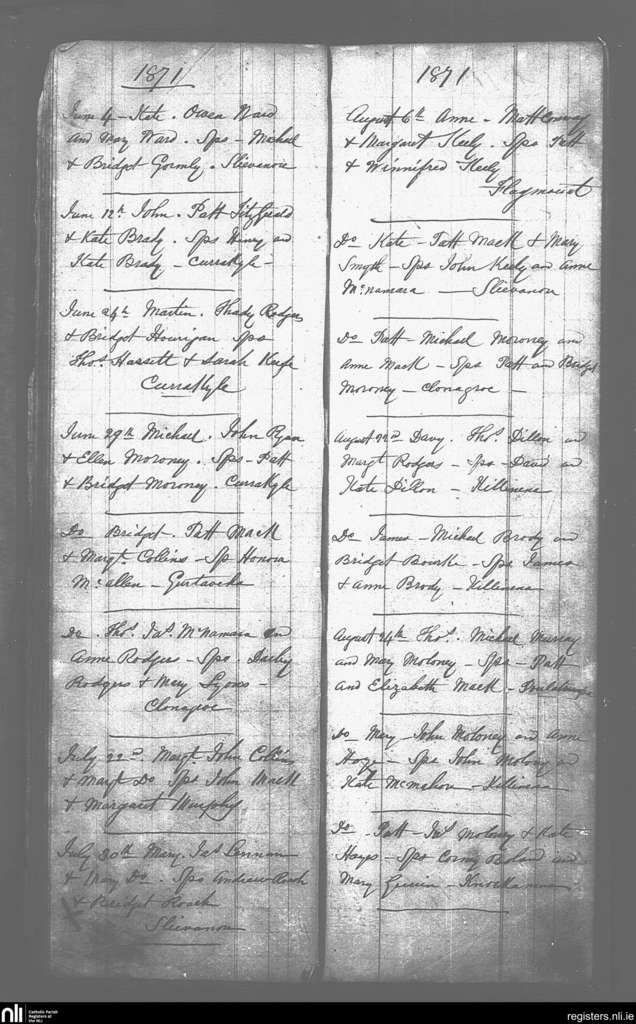 1871
June 4 - Kate. Owen Ward
and Mary Ward. Sps - Michael
& Bridget Gormly. Slievanore
June 12th John. Patt Fitzgerald
& Kate Brady. Sps Henry and
Kate Brady - Currakyle -
June 24th Martin. Thady Rodgers
& Bridget Hourigan Sps
Thos. Hassett & Sarah Keefe
Currakyle
June 29th Michael. John Ryan
& Ellen Moroney. Sps - Patt
& Bridget Moroney. Currakyle
Do Bridget. Patt Mack
& Margt. Collins - Sp Honora
Mc allen -
Do. Thos. Jas. McNamara and
Anne Rodgers - Sps. Darby
Rodgers & Mary Lyons -
Clonagroe
July 22nd. Margt John Collins
& Margt Do Sps John Mack
& Margaret Murphy
July 30th Mary. Jas Lennan
& Mary Do. Sps Andrew Roach
& Bridget Roach
Slievanore
1871
August 6th Anne - Matt Conway
& Margaret Keely. Sps Patt
& Winnifred Keely
Flagmount
Do Kate - Patt Mack & Mary
Smyth - Sps John Keely and Anne
McNamara - Slievanore
Do Patt - Michael Moroney and
Anne Mack - Sps Patt and Bridget
Moroney - Clonagroe -
August 22nd Davy. Thos. Dillon and
Margt Rodgers - Sps - David and
Kate Dillon - Killenena
Do James - Michael Brody and
Bridget Bourke - Sps James
& Anne Brody - Killenena
August 24th Thos. Michael Murray
and Mary Moloney - Sps - Patt
and Elizabeth Mack -
Do Mary - John Moloney and Anne
Sps John Moloney and
Kate McMahon - Killenena
Do - Patt - Jas Moloney & Kate
Hayes - Sps and
Mary
nli
Catholic Parish
Registers at
the NLI
registers.nli.ie